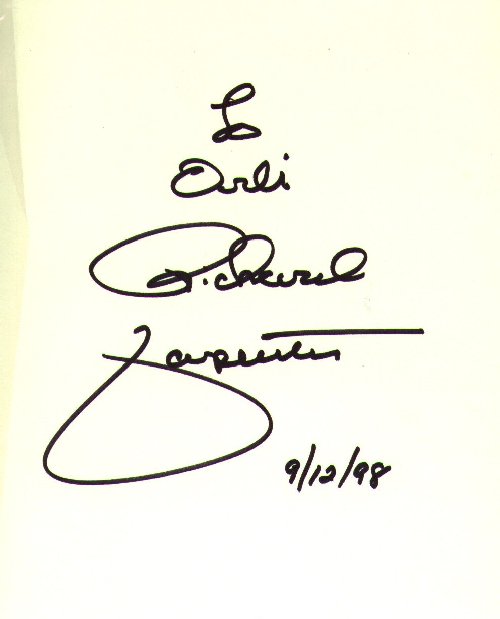 To
Orli
Richard
Carpenter
9/12/98